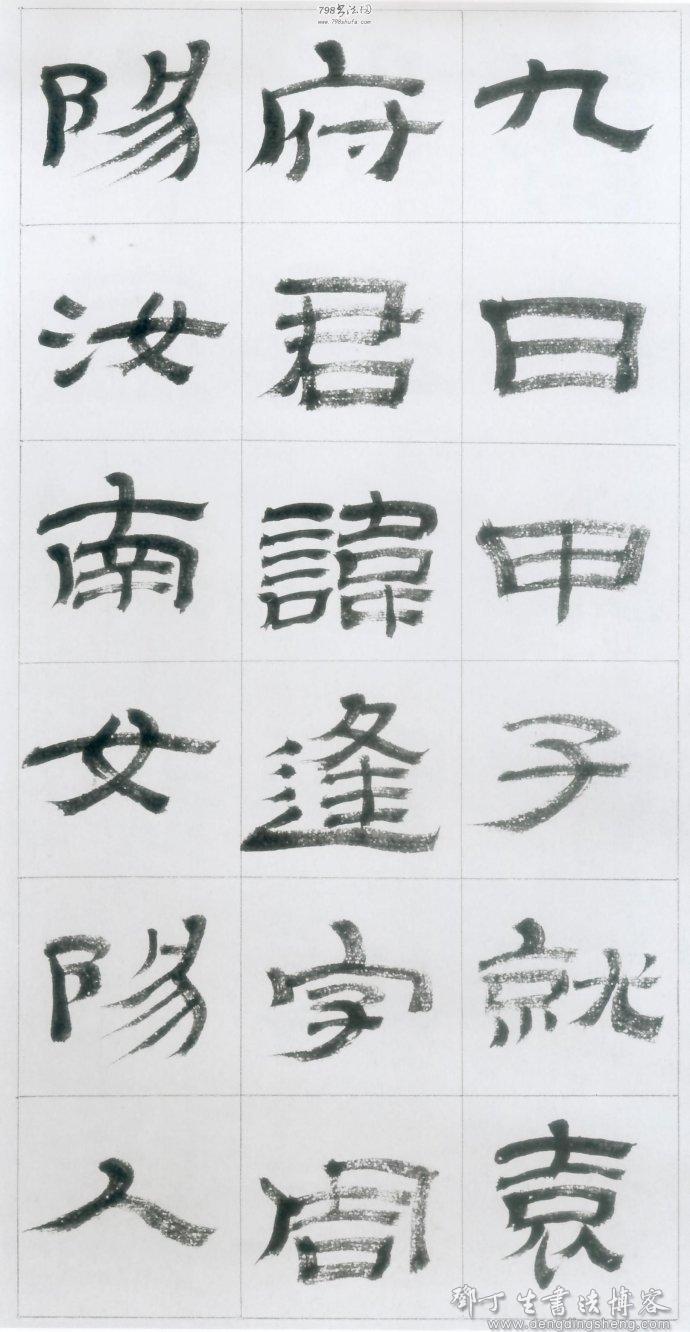 798书法网
www.798shufa.com
九日甲子就袁
府君諱逢字周
陽汝南女陽人
鄧丁生書法博客
www.dengdingsheng.com